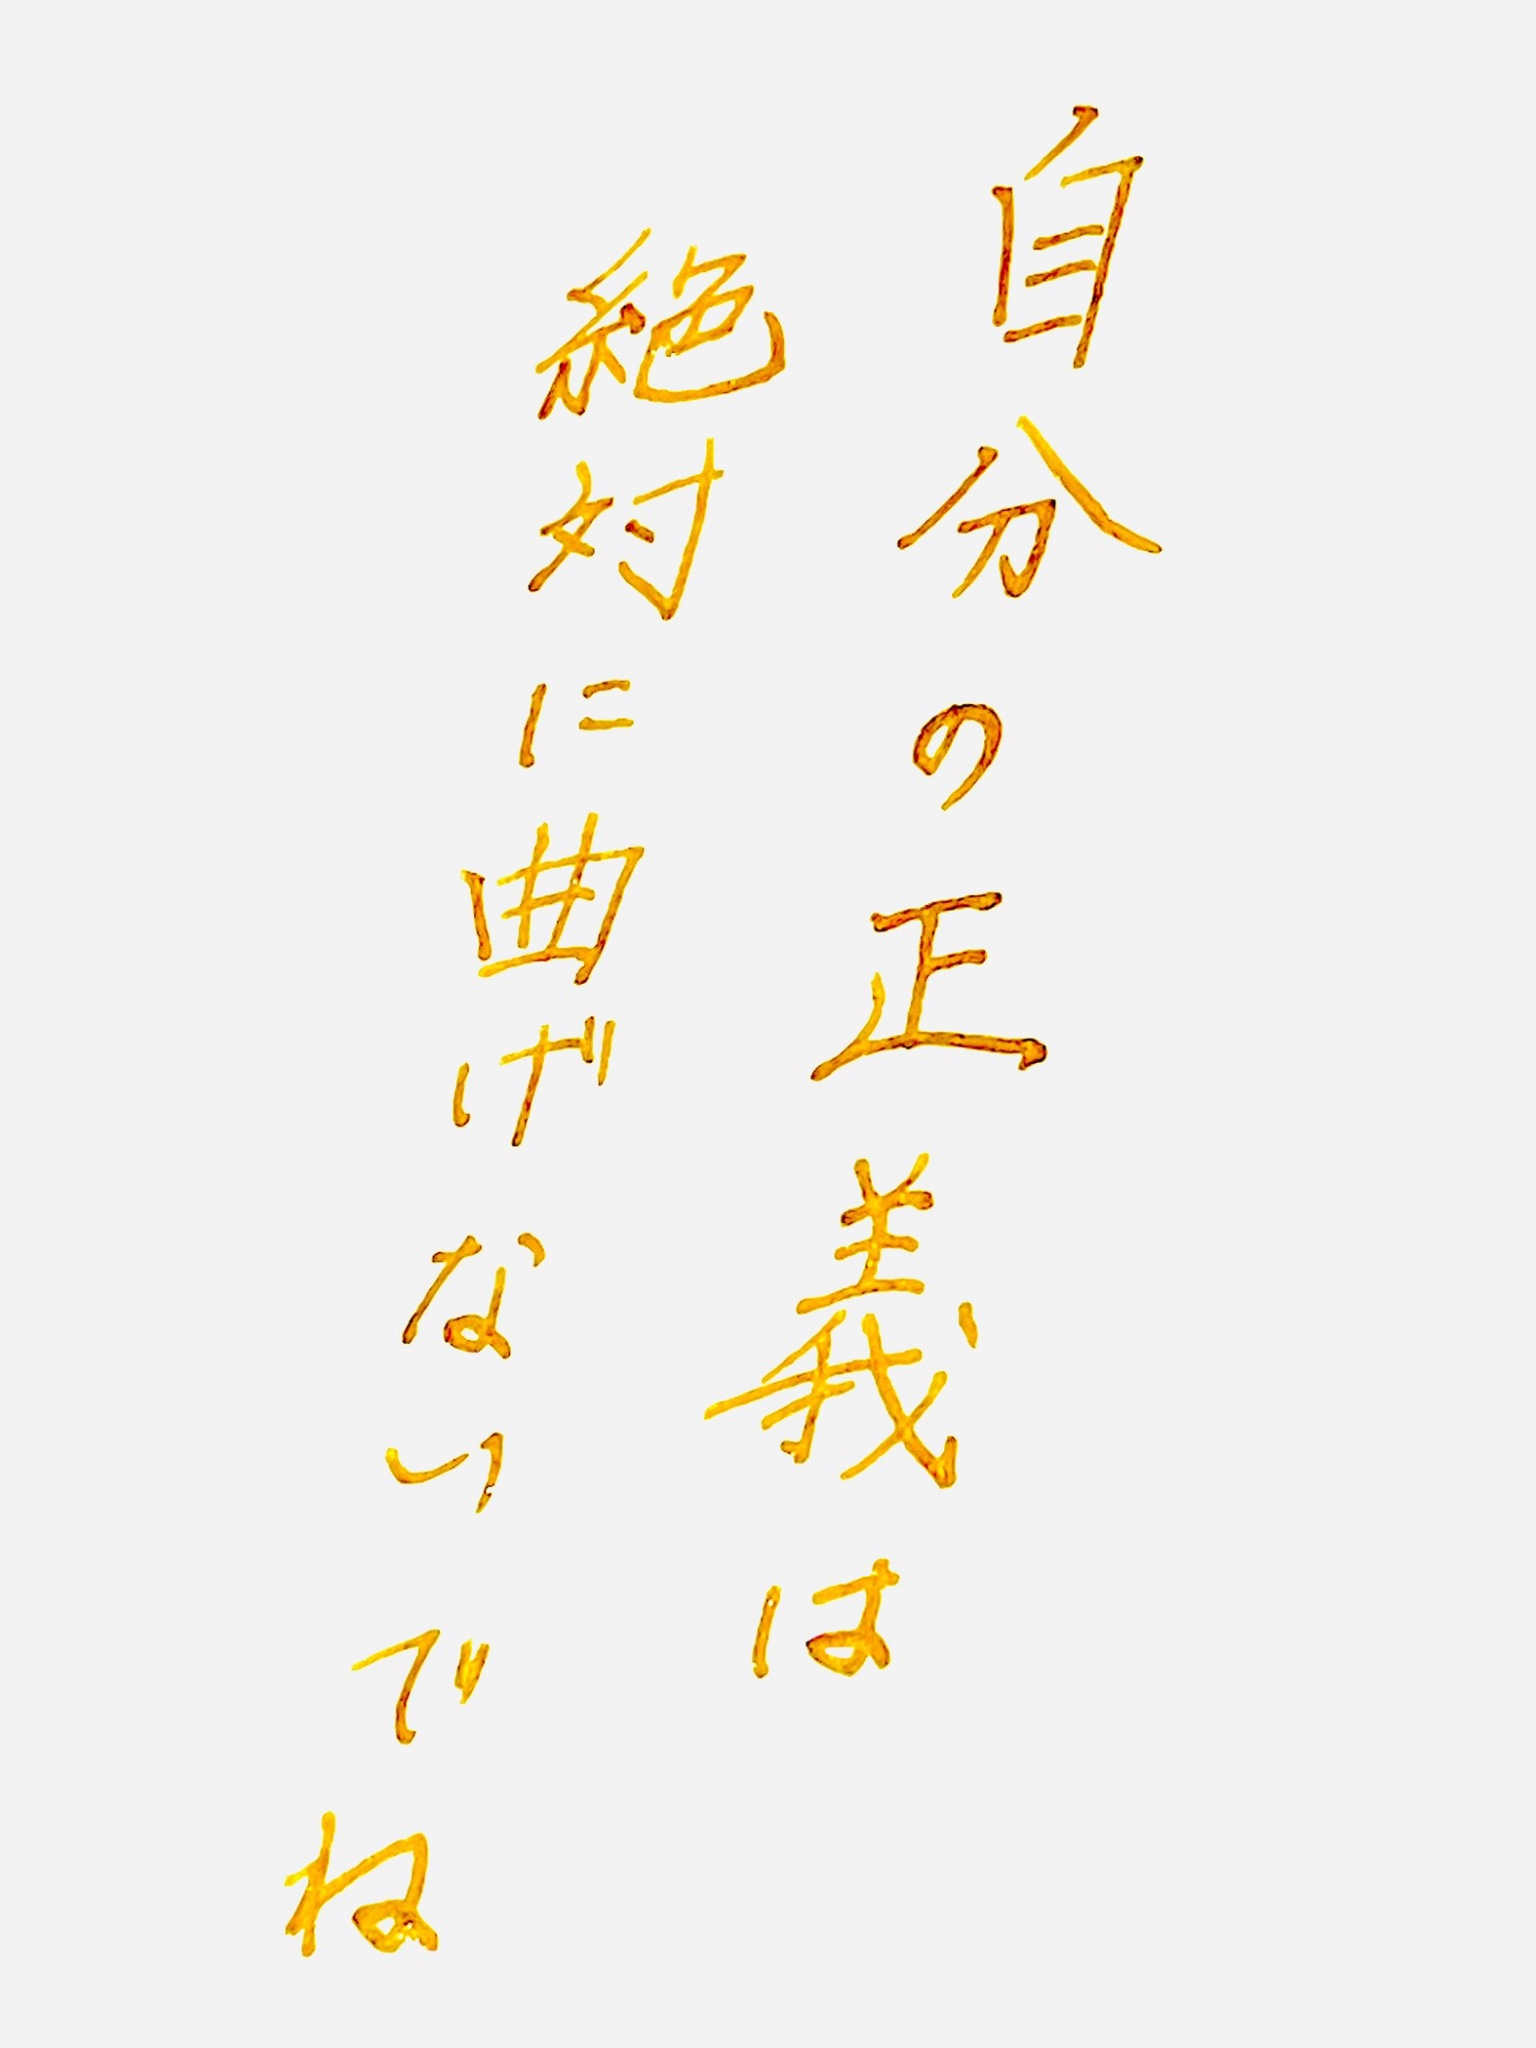 自分の正義は
絶対に曲げないでね